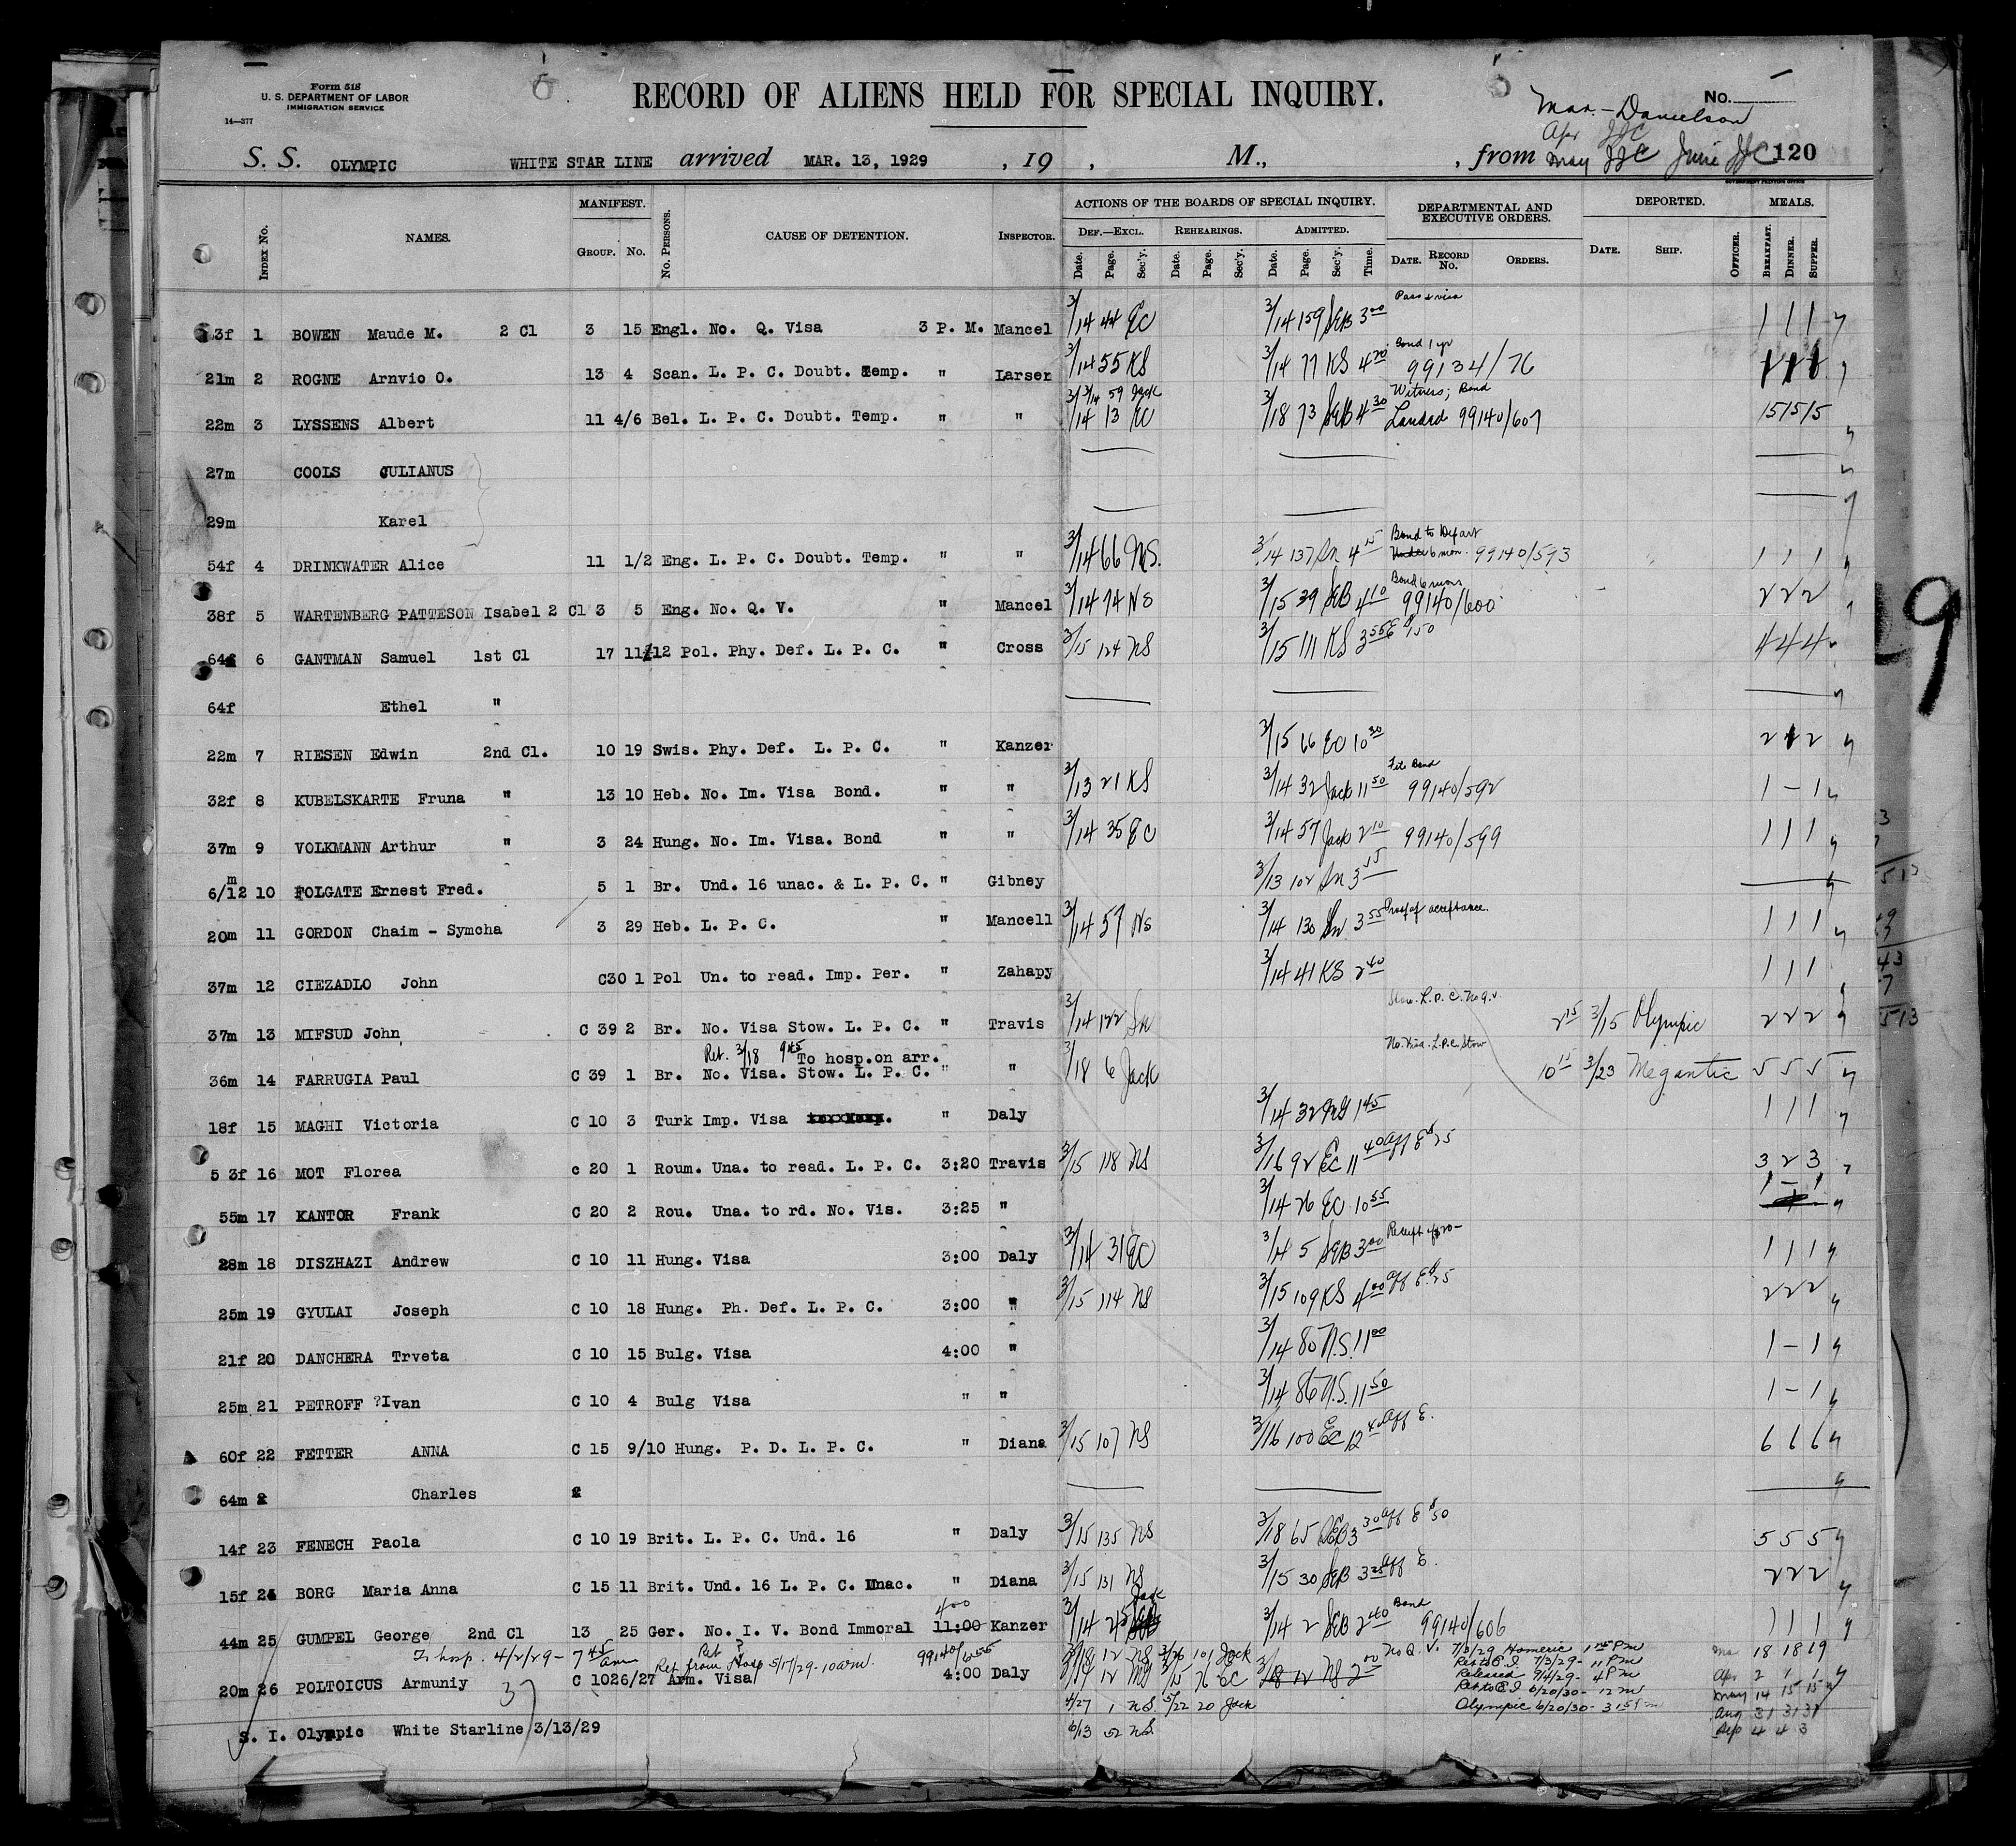 Form 518
U. S. DEPARTMENT OF LABOR
IMMIGRATION SERVICE
14—377
RECORD OF ALIENS HELD FOR SPECIAL INQUIRY.
No.
Mar.- Danielson
Apr JJC
S. S. OLYMPIC WHITE STAR LINE arrived MAR. 13, 1929 , 19 , M., , from May JJC June JJC 120
GOVERNMENT PRINTING OFFICE
INDEX No. NAMES. MANIFEST. GROUP. No. No. PERSONS. CAUSE OF DETENTION. INSPECTOR. ACTIONS OF THE BOARDS OF SPECIAL INQUIRY. DEF.—EXCL. Date. Page. Sec'y. REHEARINGS. Date. Page. Sec'y. ADMITTED. Date. Page. Sec'y. Time. DEPARTMENTAL AND EXECUTIVE ORDERS. DATE. RECORD No. ORDERS. DEPORTED. DATE. SHIP. OFFICER. MEALS. BREAKFAST. DINNER. SUPPER.
3f 1 BOWEN Maude M. 2 Cl 3 15 Engl. No. Q. Visa 3 P. M. Mancel 3/14 44 EC 3/14 159 SEB 3 00 Pass & visa 1 1 1
21m 2 ROGNE Arnvio O. 13 4 Scan. L. P. C. Doubt. Temp. " Larser 3/14 55 KS 3/14 77 KS 4 20 Bond 1 yr 99134/76 1 1 1
22m 3 LYSSENS Albert 11 4/6 Bel. L. P. C. Doubt. Temp. " " 3/14 59 Jack 3/14 13 EC 3/18 73 SEB 4 30 Witness; Bond Landed 99140/607 15 15 15
27m COOLS JULIANUS
29m Karel
54f 4 DRINKWATER Alice 11 1/2 Eng. L. P. C. Doubt. Temp. " " 3/14 66 NS. 3/14 137 Sn 4 15 Bond to Depart 6 mon. 99140/593 1 1 1
38f 5 WARTENBERG PATTESON Isabel 2 Cl 3 5 Eng. No. Q. V. " Mancel 3/14 74 NS 3/15 39 SEB 4 10 Bond 6 mons 99140/600 2 2 2
64f 6 GANTMAN Samuel 1st Cl 17 11/12 Pol. Phy. Def. L. P. C. " Cross 3/15 124 NS 3/15 111 KS 3 55 E $150 4 4 4
64f Ethel "
22m 7 RIESEN Edwin 2nd Cl. 10 19 Swis. Phy. Def. L. P. C. " Kanzer 3/15 66 EC 10 30 2 2 2
32f 8 KUBELSKARTE Fruna " 13 10 Heb. No. Im. Visa Bond. " " 3/13 21 KS 3/14 32 Jack 11 50 Bond 99140/592 1 - 1
37m 9 VOLKMANN Arthur " 3 24 Hung. No. Im. Visa. Bond " " 3/14 35 EC 3/14 57 Jack 2 10 99140/599 1 1 1
6/12 m 10 FOLGATE Ernest Fred. 5 1 Br. Und. 16 unac. & L. P. C. " Gibney 3/13 102 Sn 3 15
20m 11 GORDON Chaim - Symcha 3 29 Heb. L. P. C. " Mancell 3/14 57 NS 3/14 130 Sn 3 55 Proof of acceptance. 1 1 1
37m 12 CIEZADLO John C30 1 Pol Un. to read. Imp. Per. " Zahapy 3/14 41 KS 2 40 1 1 1
37m 13 MIFSUD John C 39 2 Br. No. Visa Stow. L. P. C. " Travis 3/14 122 Sn Stow. L.P.C. No q.v. 2 15 3/15 Olympic 2 2 2
Ret. 3/18 9 45 To hosp. on arr.
36m 14 FARRUGIA Paul C 39 1 Br. No. Visa. Stow. L. P. C. " " 3/18 6 Jack No. Visa. L.P.C. Stow 10 15 3/23 Megantic 5 5 5
18f 15 MAGHI Victoria C 10 3 Turk Imp. Visa " Daly 3/14 32 NS 1 45 1 1 1
5 3f 16 MOT Florea c 20 1 Roum. Una. to read. L. P. C. 3:20 Travis 3/15 118 NS 3/16 92 EC 11 40 Aff E $25 3 2 3
55m 17 KANTOR Frank C 20 2 Rou. Una. to rd. No. Vis. 3:25 " 3/14 26 EC 10 55 1 - 1
28m 18 DISZHAZI Andrew C 10 11 Hung. Visa 3:00 Daly 3/14 31 EC 3/14 5 SEB 3 00 Receipt 1 1 1
25m 19 GYULAI Joseph C 10 18 Hung. Ph. Def. L. P. C. 3:00 " 3/15 114 NS 3/15 109 KS 4 00 Aff E $25 2 2 2
21f 20 DANCHERA Trveta C 10 15 Bulg. Visa 4:00 " 3/14 80 N.S. 11 00 1 - 1
25m 21 PETROFF ?Ivan C 10 4 Bulg Visa " " 3/14 86 N.S. 11 50 1 - 1
60f 22 FETTER ANNA C 15 9/10 Hung. P. D. L. P. C. " Diana 3/15 107 NS 3/16 100 EC 12 40 Aff E. 6 6 6
64m Charles
14f 23 FENECH Paola C 10 19 Brit. L. P. C. Und. 16 " Daly 3/15 135 NS 3/18 65 SEB 3 30 Aff E $50 5 5 5
15f 24 BORG Maria Anna C 15 11 Brit. Und. 16 L. P. C. Unac. " Diana 3/15 131 NS 3/15 30 SEB 3 25 Aff E. 2 2 2
44m 25 GUMPEL George 2nd Cl 13 25 Ger. No. I. V. Bond Immoral 11:00 4 00 Kanzer 3/14 45 Jack 3/14 2 SEB 2 40 Bond 99140/606 1 1 1
To hosp. 4/2/29 - 7 45 am Ret from Hosp 5/17/29 - 10 a.m. 99140/655 3/18 12 NS 3/26 101 Jack No Q. V. 7/3/29 Homeric 1 15 Pm Mar 18 18 19
20m 26 POLTOICUS Armuniy C 10 26/27 Arm. Visa 4:00 Daly 12 NS 3/15 76 EC 3/18 12 NS 2 00 Ret to E.I. 7/3/29 - 11 Pm
Released 9/4/29 - 4 Pm Apr 2 1 1
Ret to E.I. 6/20/30 - 12 m May 14 15 15
4/27 1 NS. 5/22 20 Jack Olympic 6/20/30 - Aug 31 31 31
S. I. Olympic White Starline 3/13/29 6/13 52 NS. Sep 4 4 3